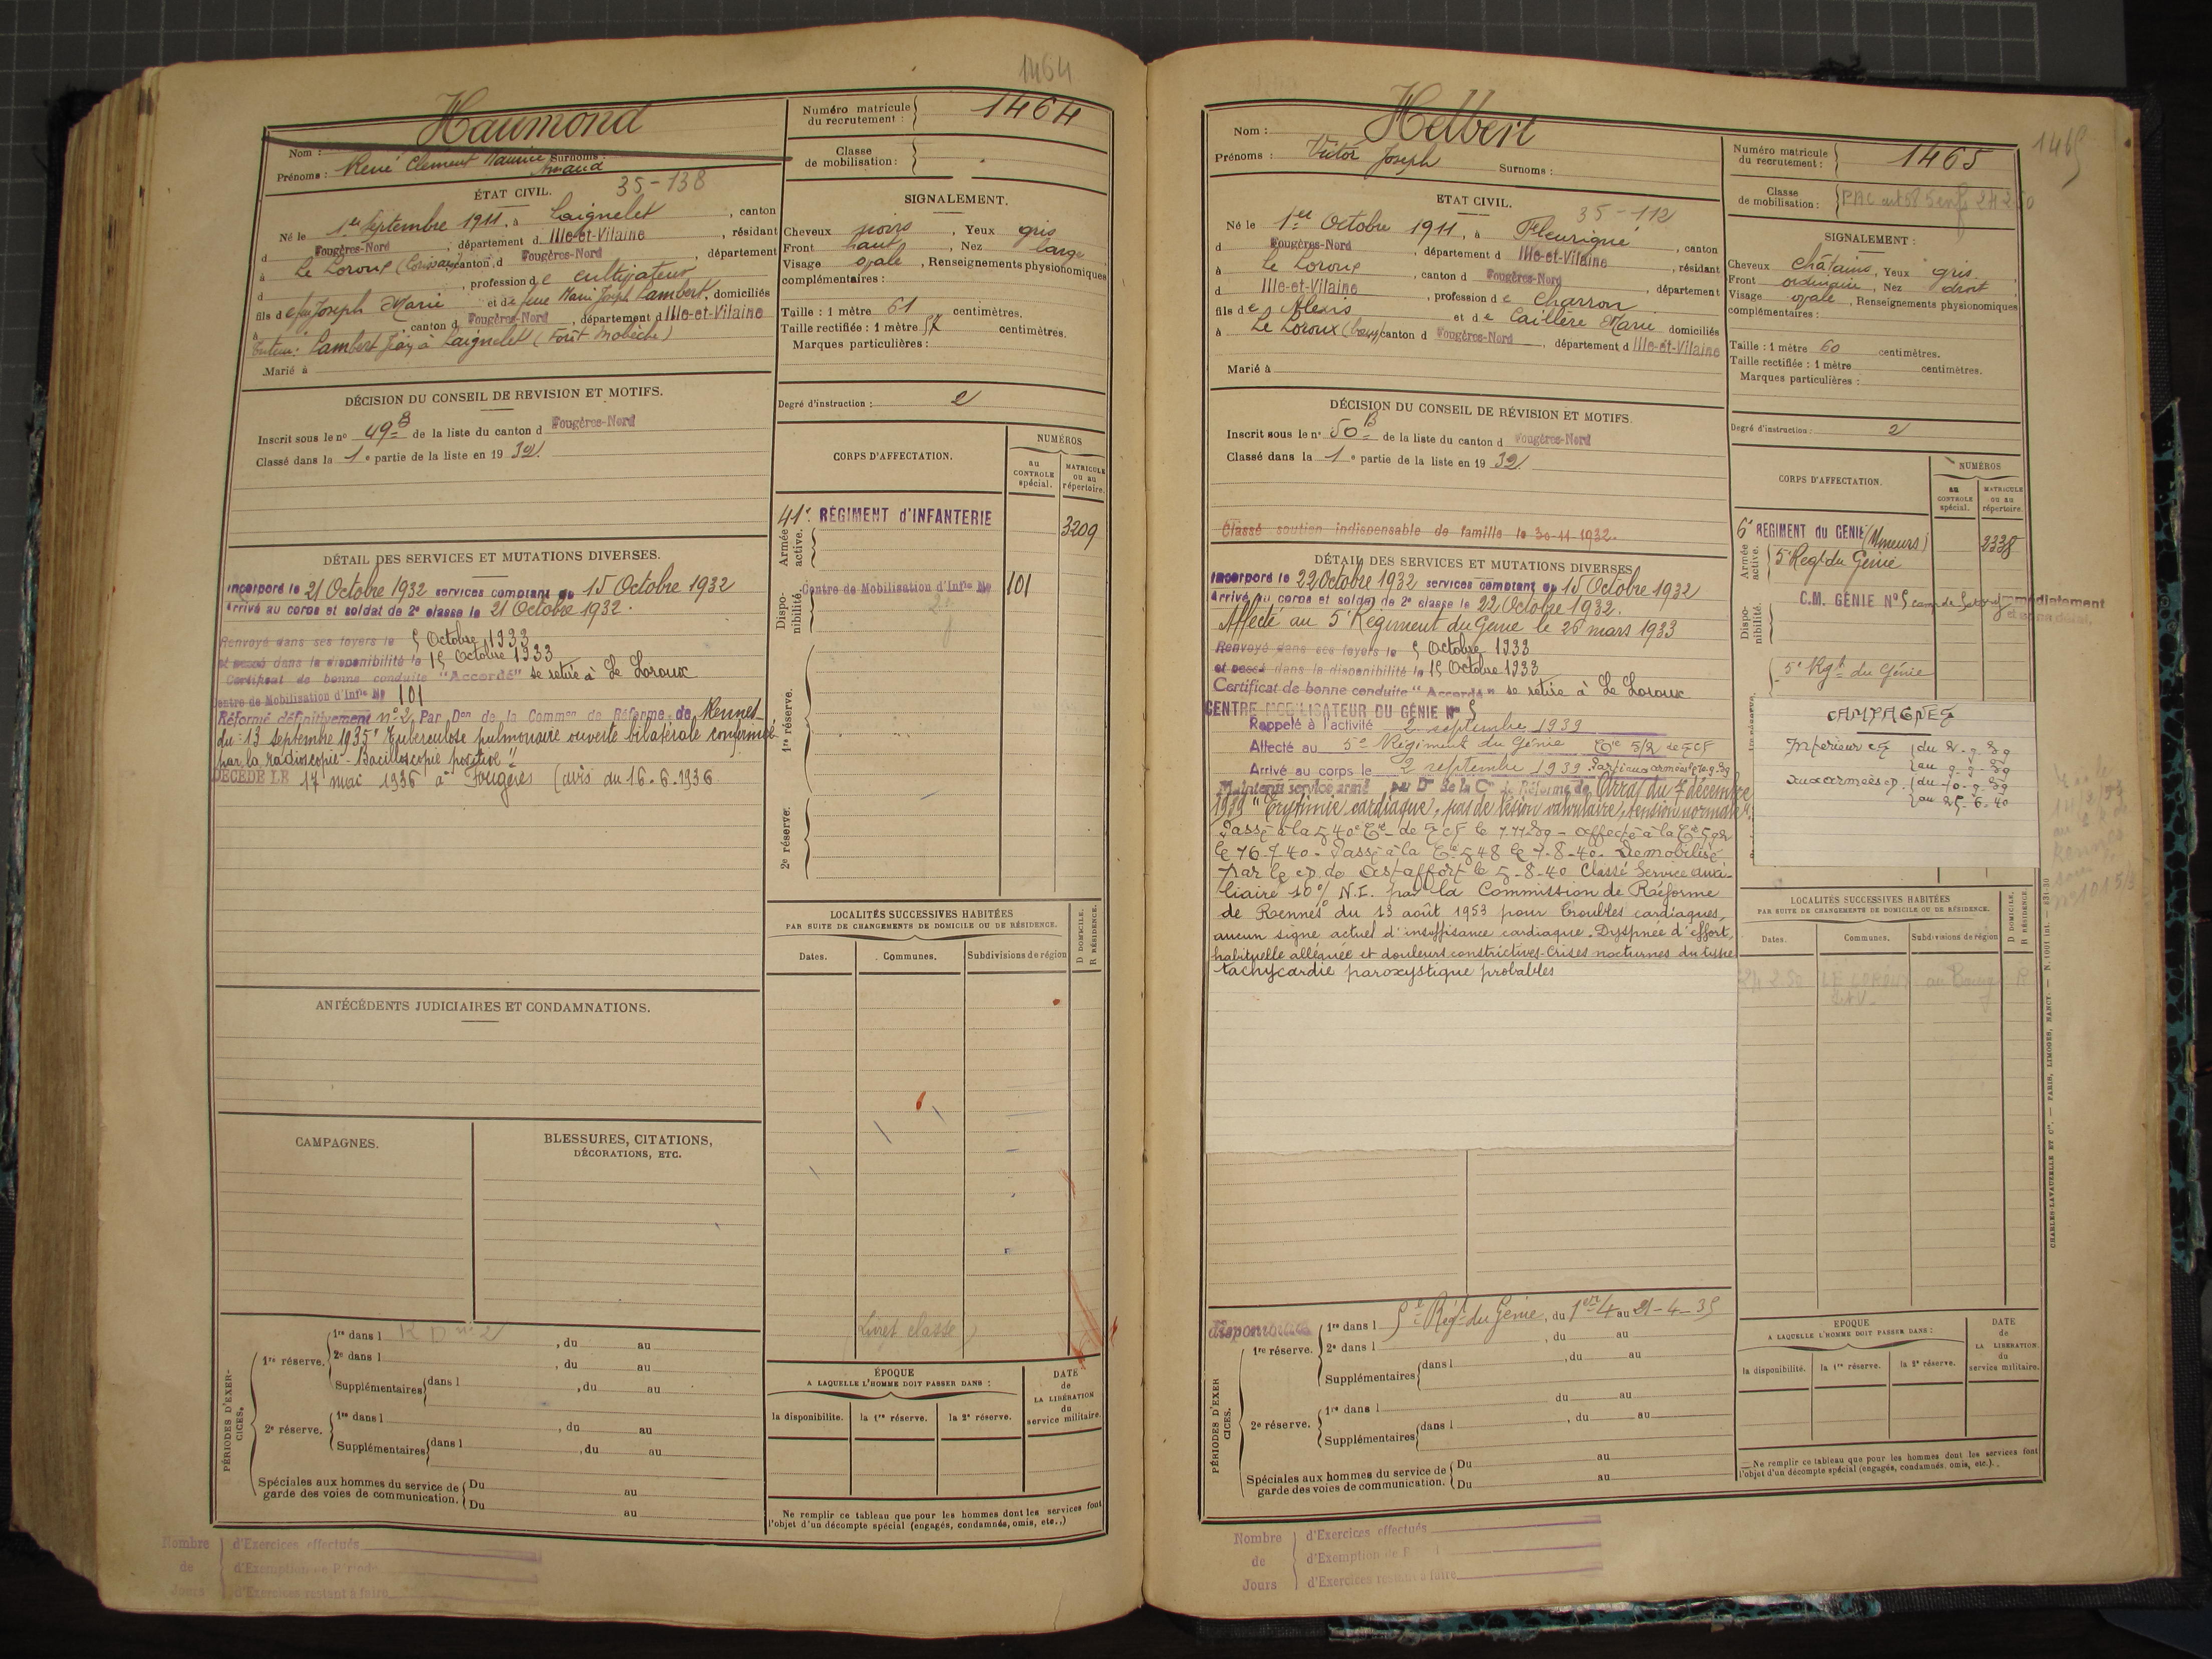 1464
Haumond
Nom :
Prénoms : René Clement Maurice Surnoms :
Armand
Numéro matricule du recrutement : 1464
Classe de mobilisation :
ÉTAT CIVIL. 35-138
Né le 1er Septembre 1911, à Laignelet, canton
d Fougères-Nord, département d Ille-et-Vilaine, résidant
à Le Loroux canton d Fougères-Nord, département
d , profession de cultivateur
fils de feu Joseph Marie et de feue Marie Joseph Lambert, domiciliés
à canton d Fougères-Nord, département d Ille-et-Vilaine
tuteur: Lambert Jean à Laignelet
Marié à
SIGNALEMENT.
Cheveux noirs, Yeux gris
Front haut, Nez large
Visage ovale, Renseignements physionomiques
complémentaires :
Taille : 1 mètre 61 centimètres.
Taille rectifiée : 1 mètre centimètres.
Marques particulières :
Degré d'instruction : 2
DÉCISION DU CONSEIL DE REVISION ET MOTIFS.
Inscrit sous le n° 49 B de la liste du canton d Fougères-Nord
Classé dans la 1e partie de la liste en 1932.
DÉTAIL DES SERVICES ET MUTATIONS DIVERSES.
Incorporé le 21 Octobre 1932 services comptant du 15 Octobre 1932
Arrivé au corps et soldat de 2e classe le 21 Octobre 1932.
Renvoyé dans ses foyers le 5 Octobre 1933
et passé dans la disponibilité le 15 Octobre 1933
Certificat de bonne conduite "Accordé" se retire à Le Loroux
Centre de Mobilisation d'Infie No 101
Réformé définitivement n° 2 Par Don de la Common de Réforme de Rennes
du 13 septembre 1935 "Tuberculose pulmonaire ouverte bilatérale confirmée
par la radioscopie - Bacilloscopie positive"
DÉCÉDÉ LE 17 mai 1936 à Fougères (avis du 16.6.1936
CORPS D'AFFECTATION.
NUMÉROS
au CONTROLE spécial.
MATRICULE ou au répertoire.
Armée active.
41e RÉGIMENT d'INFANTERIE 3209
Disponibilité.
Centre de Mobilisation d'Infie No 101
1re réserve.
2e réserve.
LOCALITÉS SUCCESSIVES HABITÉES
PAR SUITE DE CHANGEMENTS DE DOMICILE OU DE RÉSIDENCE.
Dates. Communes. Subdivisions de région
D DOMICILE. R RÉSIDENCE.
ANTÉCÉDENTS JUDICIAIRES ET CONDAMNATIONS.
CAMPAGNES.
BLESSURES, CITATIONS,
DÉCORATIONS, ETC.
Livret classé
PÉRIODES D'EXERCICES.
1re réserve.
1re dans l R D n° 2, du au
2e dans l , du au
Supplémentaires dans l , du au
2e réserve.
1re dans l , du au
Supplémentaires dans l , du au
Spéciales aux hommes du service de garde des voies de communication.
Du au
Du au
ÉPOQUE
A LAQUELLE L'HOMME DOIT PASSER DANS :
la disponibilité. la 1re réserve. la 2e réserve.
DATE de LA LIBÉRATION du service militaire.
Ne remplir ce tableau que pour les hommes dont les services font
l'objet d'un décompte spécial (engagés, condamnés, omis, etc.,)
Nombre de Jours
d'Exercices effectués
d'Exemption de Période
d'Exercices restant à faire
1465
Nom : Helbert
Prénoms : Victor Joseph Surnoms :
Numéro matricule du recrutement : 1465
Classe de mobilisation :
ETAT CIVIL. 35-112
Né le 1er Octobre 1911, à Fleurigné, canton
d Fougères-Nord, département d Ille-et-Vilaine, résidant
à Le Loroux, canton d Fougères-Nord, département
d Ille-et-Vilaine, profession de charron
fils de Alexis et de Caillère Marie domiciliés
à Le Loroux (bourg) canton d Fougères-Nord, département d Ille-et-Vilaine
Marié à
SIGNALEMENT :
Cheveux châtains, Yeux gris
Front ordinaire, Nez droit
Visage ovale, Renseignements physionomiques
complémentaires :
Taille : 1 mètre 60 centimètres.
Taille rectifiée : 1 mètre centimètres.
Marques particulières :
Degré d'instruction : 2
DÉCISION DU CONSEIL DE RÉVISION ET MOTIFS.
Inscrit sous le n° 50 B de la liste du canton d Fougères-Nord
Classé dans la 1e partie de la liste en 1932
Classé soutien indispensable de famille le 30-11-1932.
DÉTAIL DES SERVICES ET MUTATIONS DIVERSES
Incorporé le 22 Octobre 1932 services comptant du 15 Octobre 1932
Arrivé au corps et soldat de 2e classe le 22 Octobre 1932.
Affecté au 5e Régiment du Génie le 26 mars 1933
Renvoyé dans ses foyers le 5 Octobre 1933
et passé dans la disponibilité le 15 Octobre 1933
Certificat de bonne conduite "Accordé" se retire à Le Loroux
CENTRE MOBILISATEUR DU GÉNIE N° 5
Rappelé à l'activité 2 septembre 1939
Affecté au 5e Régiment du Génie Cie 5/2 de SCF
Arrivé au corps le 2 septembre 1939. Parti aux armées le 10.9.39
Maintenu service armé par Don de la Con de Réforme de Arras du 7 décembre
1939 "Erythmie cardiaque, pas de lésion valvulaire, tension normale".
Passé à la 540e Cie de SCF le 7.11.39 - affecté à la Cie 592
le 16.7.40. Passé à la Cie 548 le 7.8.40. Démobilisé
par le CD de Astaffort le 5.8.40 Classé Service auxi-
liaire 10% N.I. par la Commission de Réforme
de Rennes du 13 août 1953 pour troubles cardiaques,
aucun signe actuel d'insuffisance cardiaque. Dyspnée d'effort,
habituelle alléguée et douleurs constrictives - Crises nocturnes du type
tachycardie paroxystique probables
CORPS D'AFFECTATION.
NUMÉROS
au CONTROLE spécial.
MATRICULE ou au répertoire.
Armée active.
6e REGIMENT du GENIE (Mineurs) 2338
5e Regt du Génie
Disponibilité.
C.M. GÉNIE N° 5 immédiatement
et sans délai.
5e Rgt du Génie
CAMPAGNES
Intérieur CS du 2.9.39
au 9.9.39
aux armées CD. du 10.9.39
au 25.6.40
LOCALITÉS SUCCESSIVES HABITÉES
PAR SUITE DE CHANGEMENTS DE DOMICILE OU DE RÉSIDENCE.
Dates. Communes. Subdivisions de région
D DOMICILE. R RÉSIDENCE.
24 2 50 LE LOROUX au Bourg R
I et V.
CHARLES-LAVAUZELLE ET Cie. — PARIS, LIMOGES, NANCY.
PÉRIODES D'EXERCICES.
disponibilité
1re réserve.
1re dans l 5e Regt du Génie, du 1er 4 au 21-4-35
2e dans l , du au
Supplémentaires dans l , du au
du au
2e réserve.
1re dans l , du au
Supplémentaires dans l
Spéciales aux hommes du service de garde des voies de communication.
Du au
Du au
EPOQUE
A LAQUELLE L'HOMME DOIT PASSER DANS :
la disponibilité. la 1re réserve. la 2e réserve.
DATE de LA LIBERATION du service militaire.
Ne remplir ce tableau que pour les hommes dont les services font
l'objet d'un décompte spécial (engagés, condamnés, omis, etc.).
Nombre de Jours
d'Exercices effectués
d'Exemption de
d'Exercices restant à faire